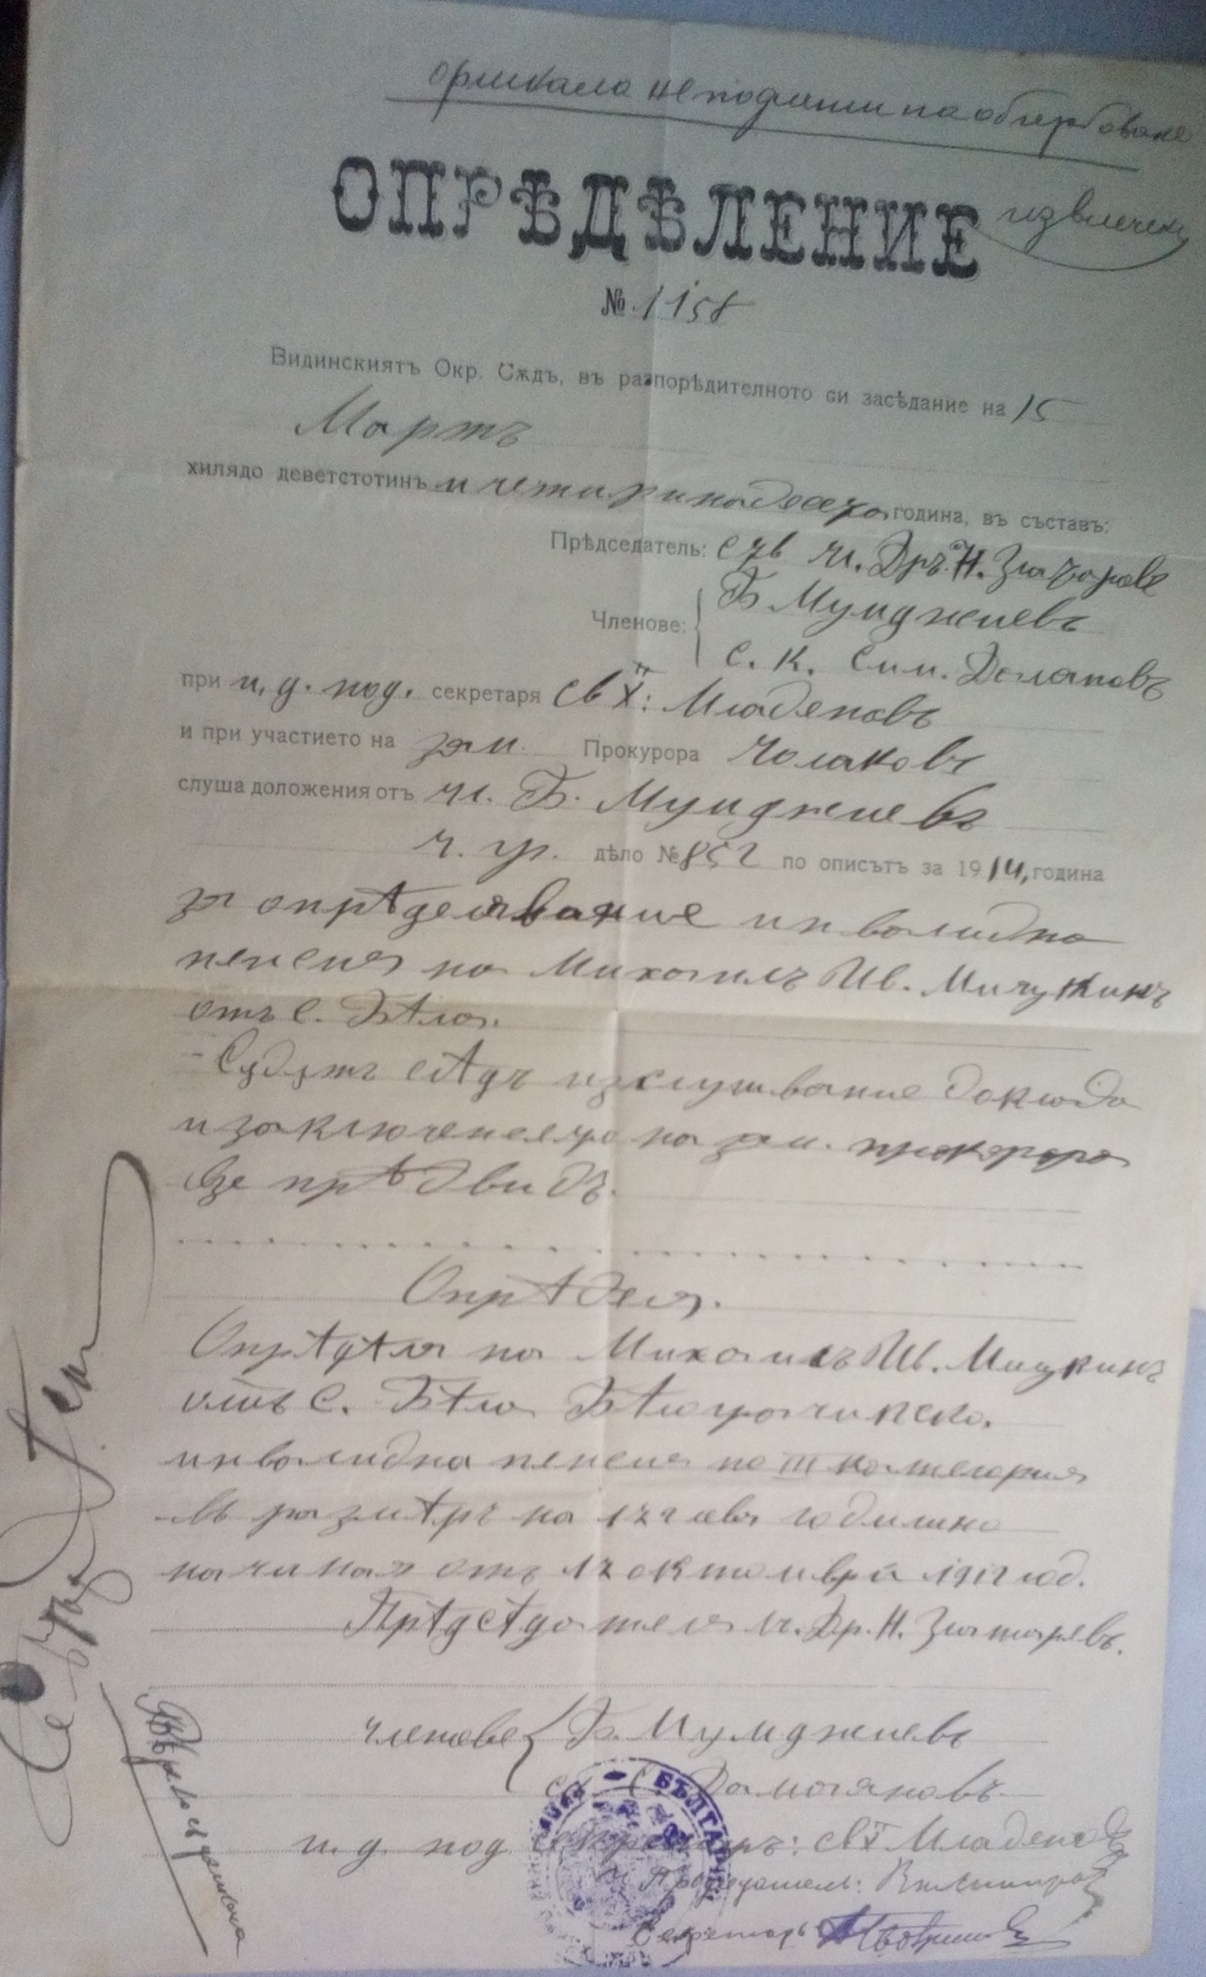 неподлежи на обгербване
ОПРѢДѢЛЕНИЕ
№ 1158
Видинскиятъ Окр. Сѫдъ, въ разпорѣдителното си засѣдание на 15
Мартъ
хилядо деветстотинъ и четиринадесета година, въ съставъ:
Прѣдседатель: чл. Дръ. Н. Златаровъ
Членове: Б Мумджиевъ
С. К. Сим.
при и. д. под. секретаря Св Х: Младеновъ
и при участието на зам. Прокурора Чолаковъ
слуша доложения отъ чл. Б. Мумджиевъ
ч. гр. дѣло № 852 по описътъ за 1914, година
за опрѣделявание инвалидна
пенсия на Михаилъ Ив. Мичукинъ
отъ с. Бѣла.
- Судътъ слѣдъ изслушвание доклада
и заключението на зам. прокурора
взе прѣдвидъ.
Опрѣделя.
Опрѣдѣля на Михаилъ Ив. Мицукинъ
отъ с. Бѣла Бѣлоградчикско.
инвалидна пенсия по III категория
въ размѣръ на лева годишно
начиная отъ октомврий 1912 год.
Прѣдсѣдателя чл. Др. Н. Златаревъ.
членове { Б. Мумджиевъ
и. д. под секретаръ: Св Х Младеновъ
Председатель:
Секретарь
БЪЛГАРИЯ